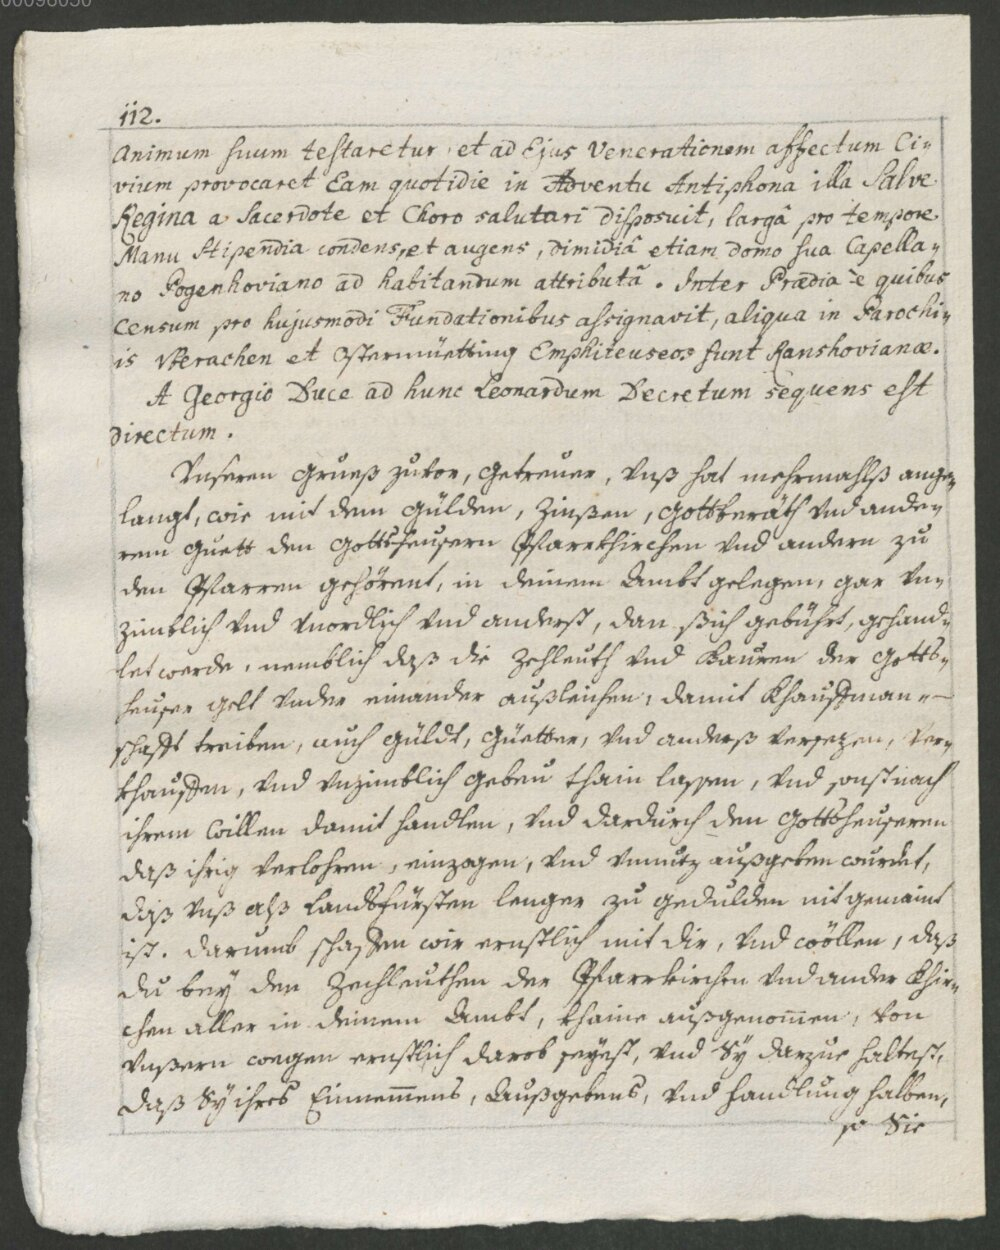 00096050
112.
Animum suum testaretur, et ad Ejus Venerationem affectum Ci-
vium provocaret Eam quotidie in Adventu Antiphona illa Salve
Regina a Sacerdote et Choro salutari disposuit, largâ pro tempore
Manu Stipendia condens, et augens, dimidiâ etiam domo sua Capella-
no Pogenhoviano ad habitandum attributâ. Inter Prædia è quibus
Censum pro hujusmodi Fundationibus assignavit, aliqua in Parochi-
is Aerachen et Ostermüetting Emphiteuseos sunt Ranshovianæ.
A Georgio Duce ad hunc Leonardum Decretum sequens est
directum.
Unseren Grueß zuvor, Getreuer, Vnß hat mehrmahlß ange-
langt, wie mit dem Gülden, Zinßen, Gottberäth vnd ande-
rem Guett den Gottsheusern Pfarrkhirchen vnd andern zu
den Pfarren gehörent, in deinem Ambt gelegen, gar vn-
zimblich vnd vnordlich vnd anderst, dan sich gebührt, gehand-
let werde, nemblich daß die Zechleuth vnd Bauren der Gotts-
heuser gelt vnder einander außleichen, damit Khauffman-
schafft treiben, auch Güldt, Güetter, vnd anderß versezen, ver-
khauffen, vnd vnzimblich geben thain lassen, vnd sonst nach
ihrem Willen damit handlen, vnd dardurch den Gottsheuseren
daß ihrig verlohren, einzogen, vnd vnnutz außgeben wurdet,
daß vnß alß Landtsfürsten lenger zu gedulden nit gemaint
ist. Darumb schaffen wir ernstlich mit dir, vnd wöllen, daß
du bey den Zechleuthen der Pfarrkirchen vnd ander Khir-
chen aller in deinem Ambt, khaine außgenommen, von
vnßern wegen ernstlich darob seyest, vnd Sy darzue haltest,
daß Sy ihres Einnemmens, Außgebens, vnd handlung halben,
so Sie